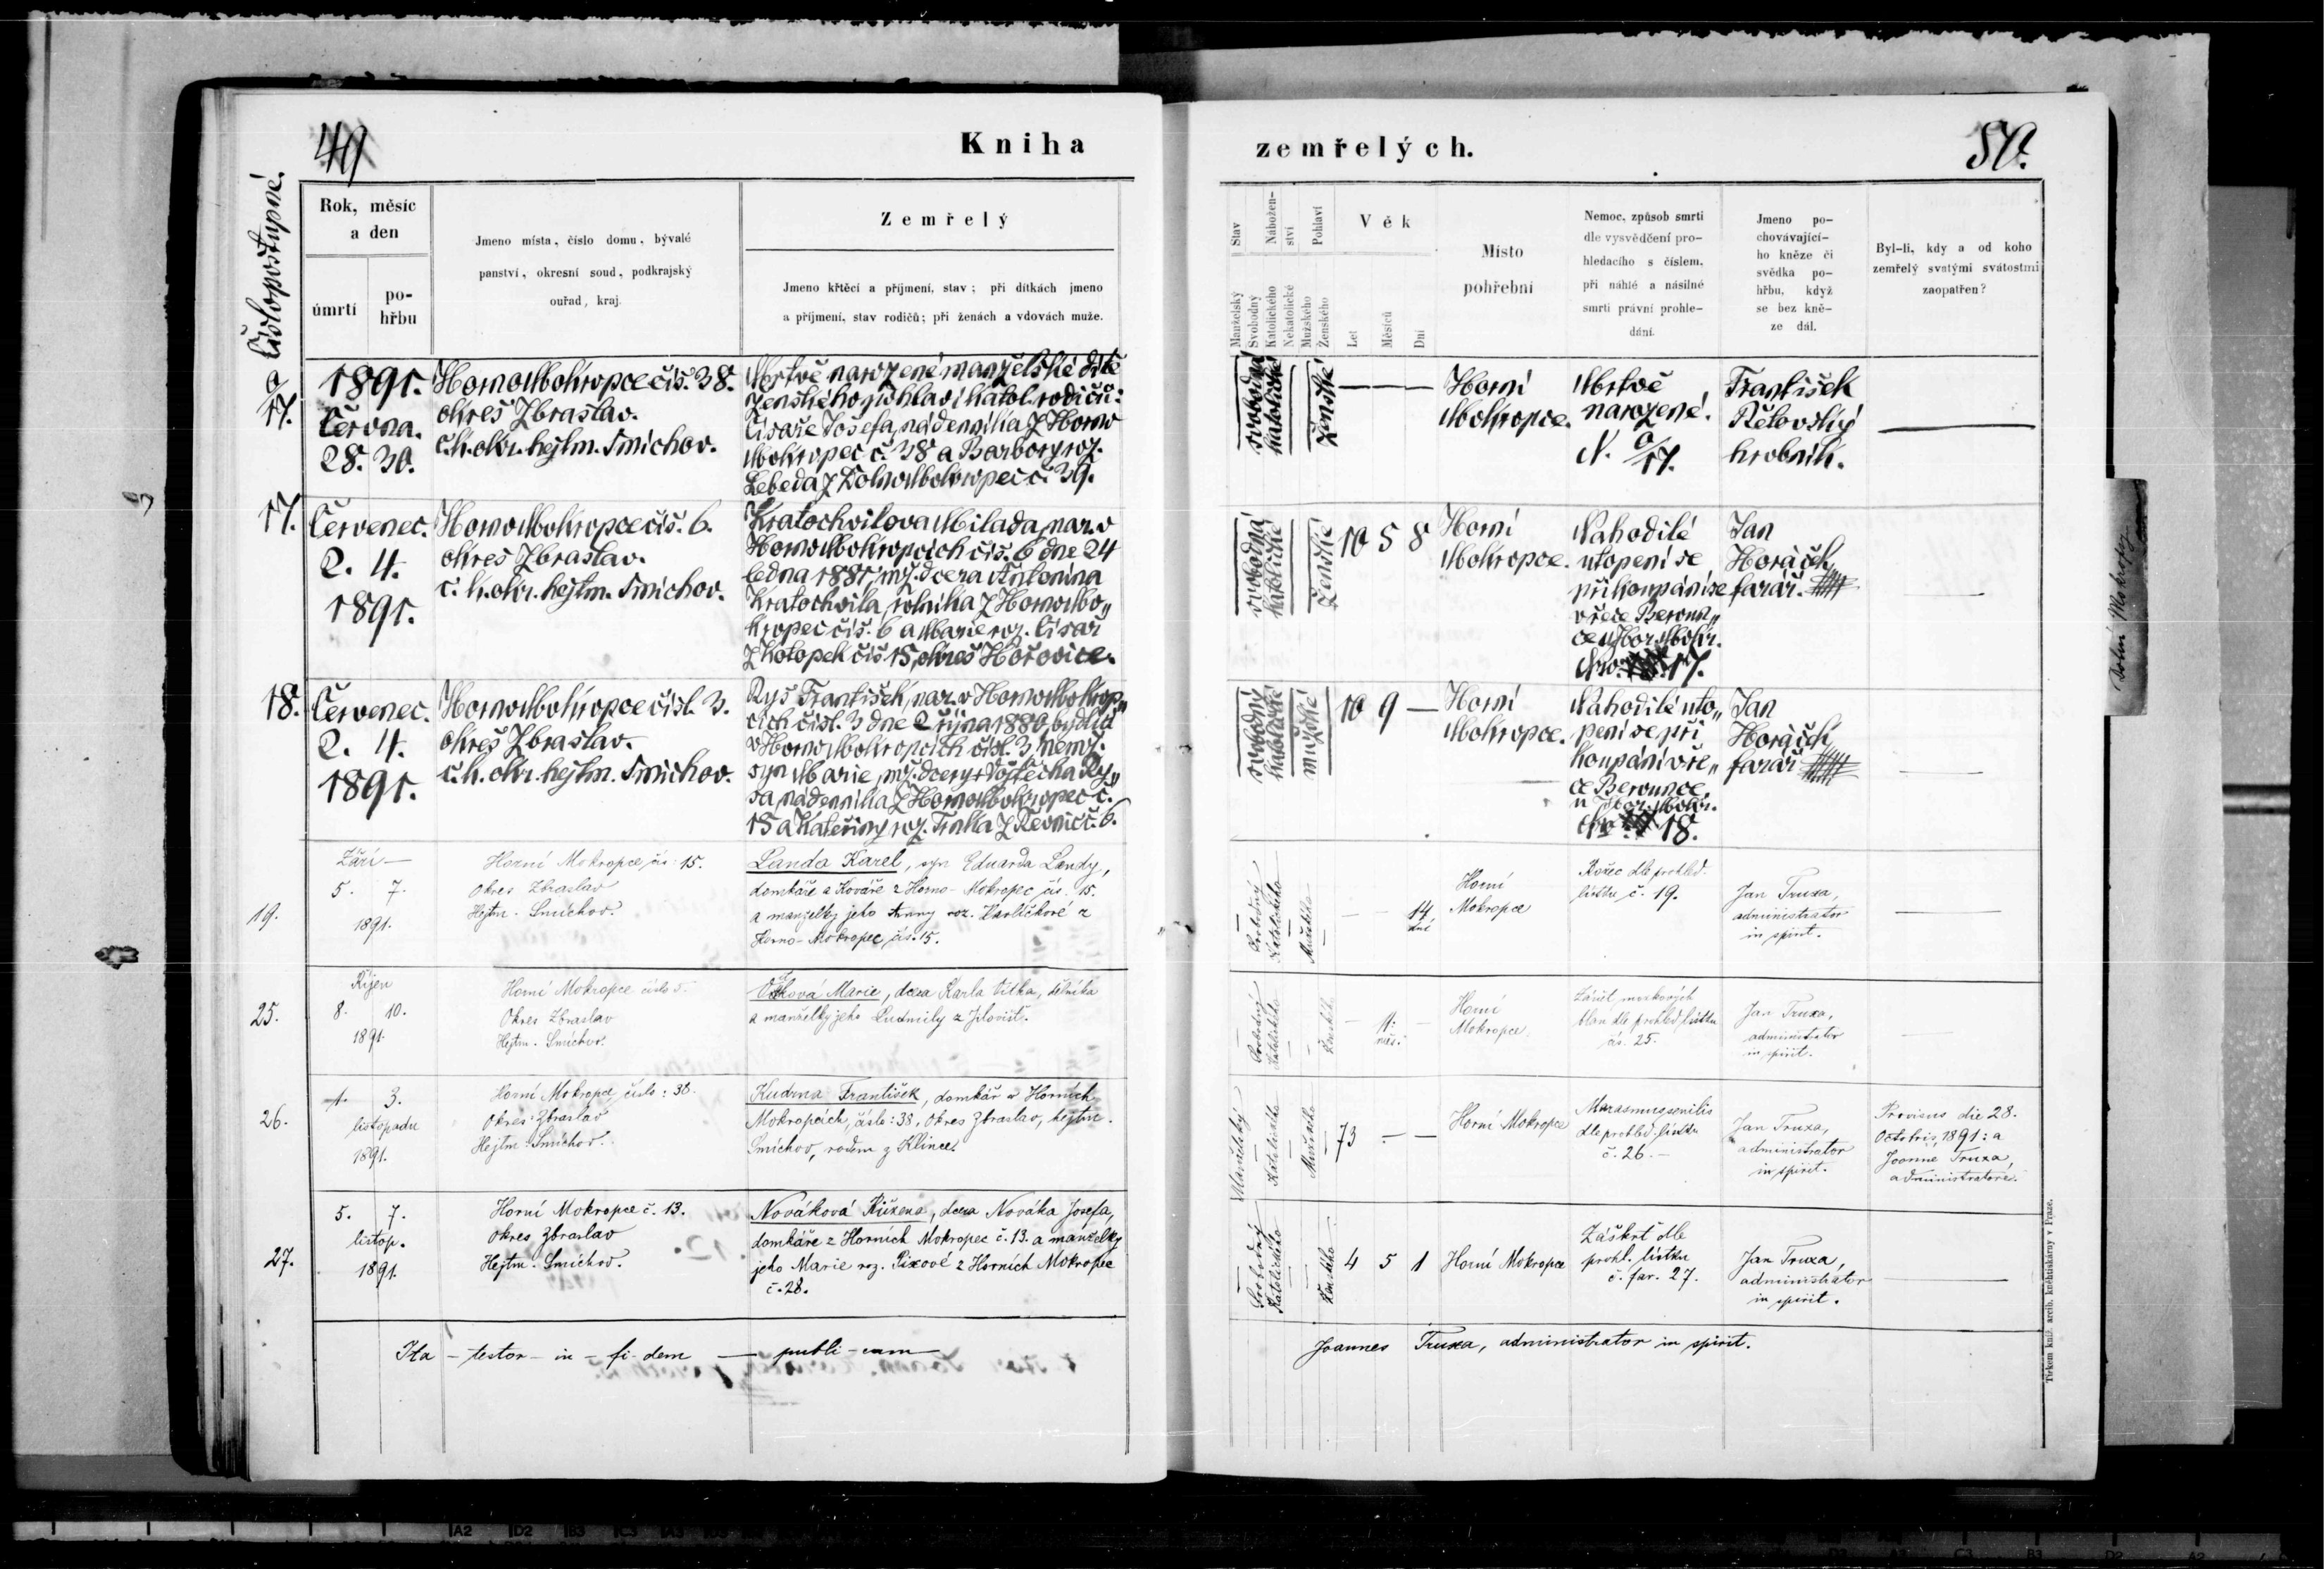 49
Kniha
zemřelých.
50.
Čísloposťupné.
Rok, měsíc
a den
úmrtí
po-
hřbu
Jmeno místa, číslo domu, bývalé
panství, okresní soud, podkrajský
ouřad, kraj.
Zemřelý
Jmeno křtěcí a příjmení, stav; při dítkách jmeno
a příjmení, stav rodičů; při ženách a vdovách muže.
Stav
Nábožen-
ství
Pohlaví
Věk
Manželský
Svobodný
Katolického
Nekatolické
Mužského
Ženského
Let
Měsíců
Dní
Místo
pohřební
Nemoc, způsob smrti
dle vysvědčení pro-
hledacího s číslem,
při náhlé a násilné
smrti právní prohle-
dání.
Jmeno po-
chovávající-
ho kněze či
svědka po-
hřbu, když
se bez kně-
ze dál.
Byl-li, kdy a od koho
zemřelý svatými svátostmi
zaopatřen?
a/17.
1891.
Června.
28. 30.
Horno Mokropce čís. 38.
okres Zbraslav.
c. k. okr. hejtm. Smíchov.
Mrtvě narozené manželské dítě
ženského pohlaví katol. rodičů:
Císaře Josefa, nádenníka z Horno
Mokropec č. 38 a Barbory roz.
Lebeda z Dolno Mokropec č. 39.
svobodná
katolické
ženské
— — —
Horní
Mokropce.
Mrtvě
narozené.
N. a/17.
František
Řetovský
hrobník.
17.
Červenec.
2. 4.
1891.
Horno Mokropce čís. 6.
okres Zbraslav.
c. k. okr. hejtm. Smíchov.
Kratochvílova Milada, nar. v
Horno Mokropcích čís. 6 dne 24
ledna 1881, mž. dcera Antonína
Kratochvíla, rolníka z Horno Mo„
kropec čís. 6 a Marie roz. Císař
z Kotopek čís. 15, okres Hořovice.
svobodná
katolické
ženské
10 5 8
Horní
Mokropce.
Nahodilé
utopení se
při koupání se
v řece Beroun„
ce u Hor. Mokr.
Nro. 17.
Jan
Horáček,
farář.
18.
Červenec.
2. 4.
1891.
Horno Mokropce čísl. 3.
okres Zbraslav.
c. k. okr. hejtm. Smíchov.
Rys František, nar. v Horno Mokrop„
cích čísl. 3 dne 2 října 1880, bydlící
v Horno Mokropcích čísl. 3, nemž.
syn Marie, mž. dcery + Vojtěcha Ry„
sa, nádenníka z Horno Mokropec č.
15 a Kateřiny roz. Trnka z Řevnic č. 6.
svobodný
katolické
mužské
10 9 —
Horní
Mokropce.
Nahodilé uto„
pení se při
koupání v ře„
ce Berounce,
u Hor. Mokr.
Nro. 18.
Jan
Horáček
farář
19.
Září —
5. 7.
1891.
Horní Mokropce čís. 15.
Okres Zbraslav
Hejtm. Smíchov.
Landa Karel, syn Eduarda Landy,
domkáře a Kováře z Horno-Mokropec čís. 15.
a manželky jeho Anny roz. Karlíčkové z
Horno-Mokropec čís. 15.
Svobodný
Katolického
Mužského
— — 14 dní
Horní
Mokropce
dle prohled.
lístku č. 19.
Jan Truxa,
administrator
in spirit.
25.
Říjen
8. 10.
1891.
Horní Mokropce číslo 5.
Okres Zbraslav
Hejtm. Smíchov.
Vítková Marie, dcera Karla Vítka, dělníka
a manželky jeho Ludmily z Jílovišť.
Svobodný
Katolického
Ženského
— 11. měs. —
Horní
Mokropce.
Zánět mozkových
blan dle prohled. lístku
čís. 25.
Jan Truxa,
administrator
in spirit.
26.
1. 3.
listopadu
1891.
Horní Mokropce, číslo: 38.
Okres: Zbraslav
Hejtm. Smíchov.
Kudrna František, domkář v Horních
Mokropcích, číslo: 38, Okres Zbraslav, hejtm.
Smíchov, rodem z Klince.
Manželský
Katolického
Mužského
73 — —
Horní Mokropce
Marasmus senilis
dle prohled. lístku
č. 26. —
Jan Truxa,
administrator
in spirit.
Provisus die 28.
Octobris 1891: a
Joanne Truxa,
administratore.
27.
5. 7.
listop.
1891.
Horní Mokropce č. 13.
Okres Zbraslav
Hejtm. Smíchov.
Nováková Růžena, dcera Nováka Josefa,
domkáře z Horních Mokropec č. 13. a manželky
jeho Marie roz. Pixové z Horních Mokropec
č. 28.
Svobodný
Katolického
Ženského
4 5 1
Horní Mokropce
Záškrt dle
prohl. lístku
č. far. 27.
Jan Truxa,
administrator
in spirit.
Ita — testor — in — fi-dem — publi-cam
Joannes Truxa, administrator in spirit.
Tiskem kníž. arcib. kněhtiskárny v Praze.
Dolní Mokropsy
A2 D2 B3 C3 A3
C3 B3 D2 A2